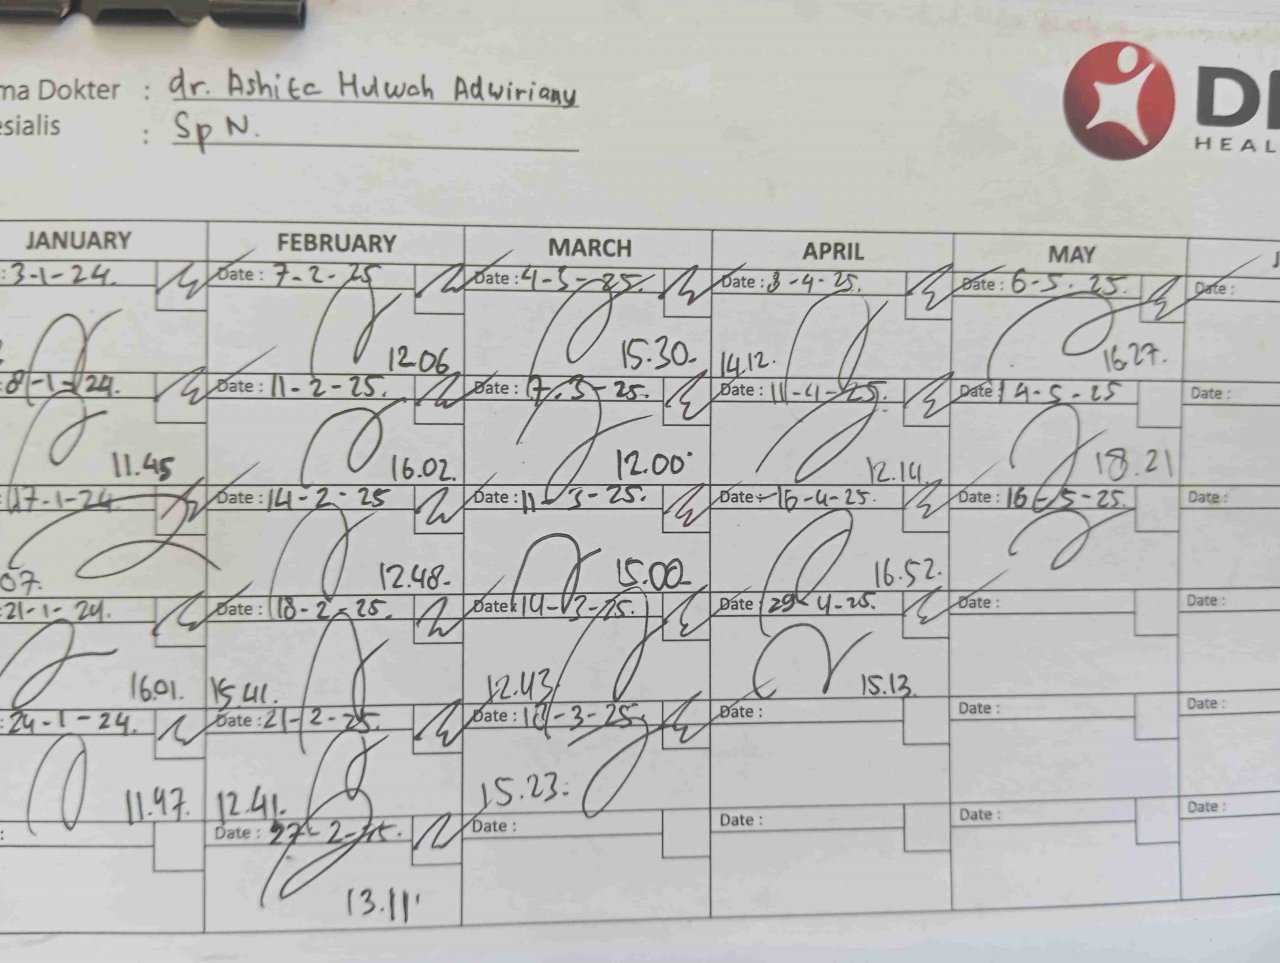 ma Dokter : dr. Ashita Hulwah Adwiriany
esialis : Sp N.
HEAL
JANUARY FEBRUARY MARCH APRIL MAY J
: 3-1-24. Date : 7-2-25 Date : 4-3-25. Date : 3-4-25. Date : 6-5.25. Date :
12.06 15.30- 14.12. 16.27.
8-1-24. Date : 11-2-25. Date : 7.3-25. Date : 11-4-25. Date : 14-5-25 Date :
11.45 16.02. 12.00 12.14. 18.21
17-1-24 Date : 14-2-25 Date : 11-3-25. Date : 16-4-25. Date : 16-5-25. Date :
07. 12.48- 15.00 16.52.
: 21-1-24. Date : 18-2-25. Date : 14-3-25. Date : 29-4-25. Date : Date :
16.01. 15.41. 12.43 15.13.
: 24-1-24. Date : 21-2-25. Date : 18-3-25. Date : Date : Date :
11.47. 12.41. 15.23.
: Date : 27-2-25. Date : Date : Date : Date :
13.11